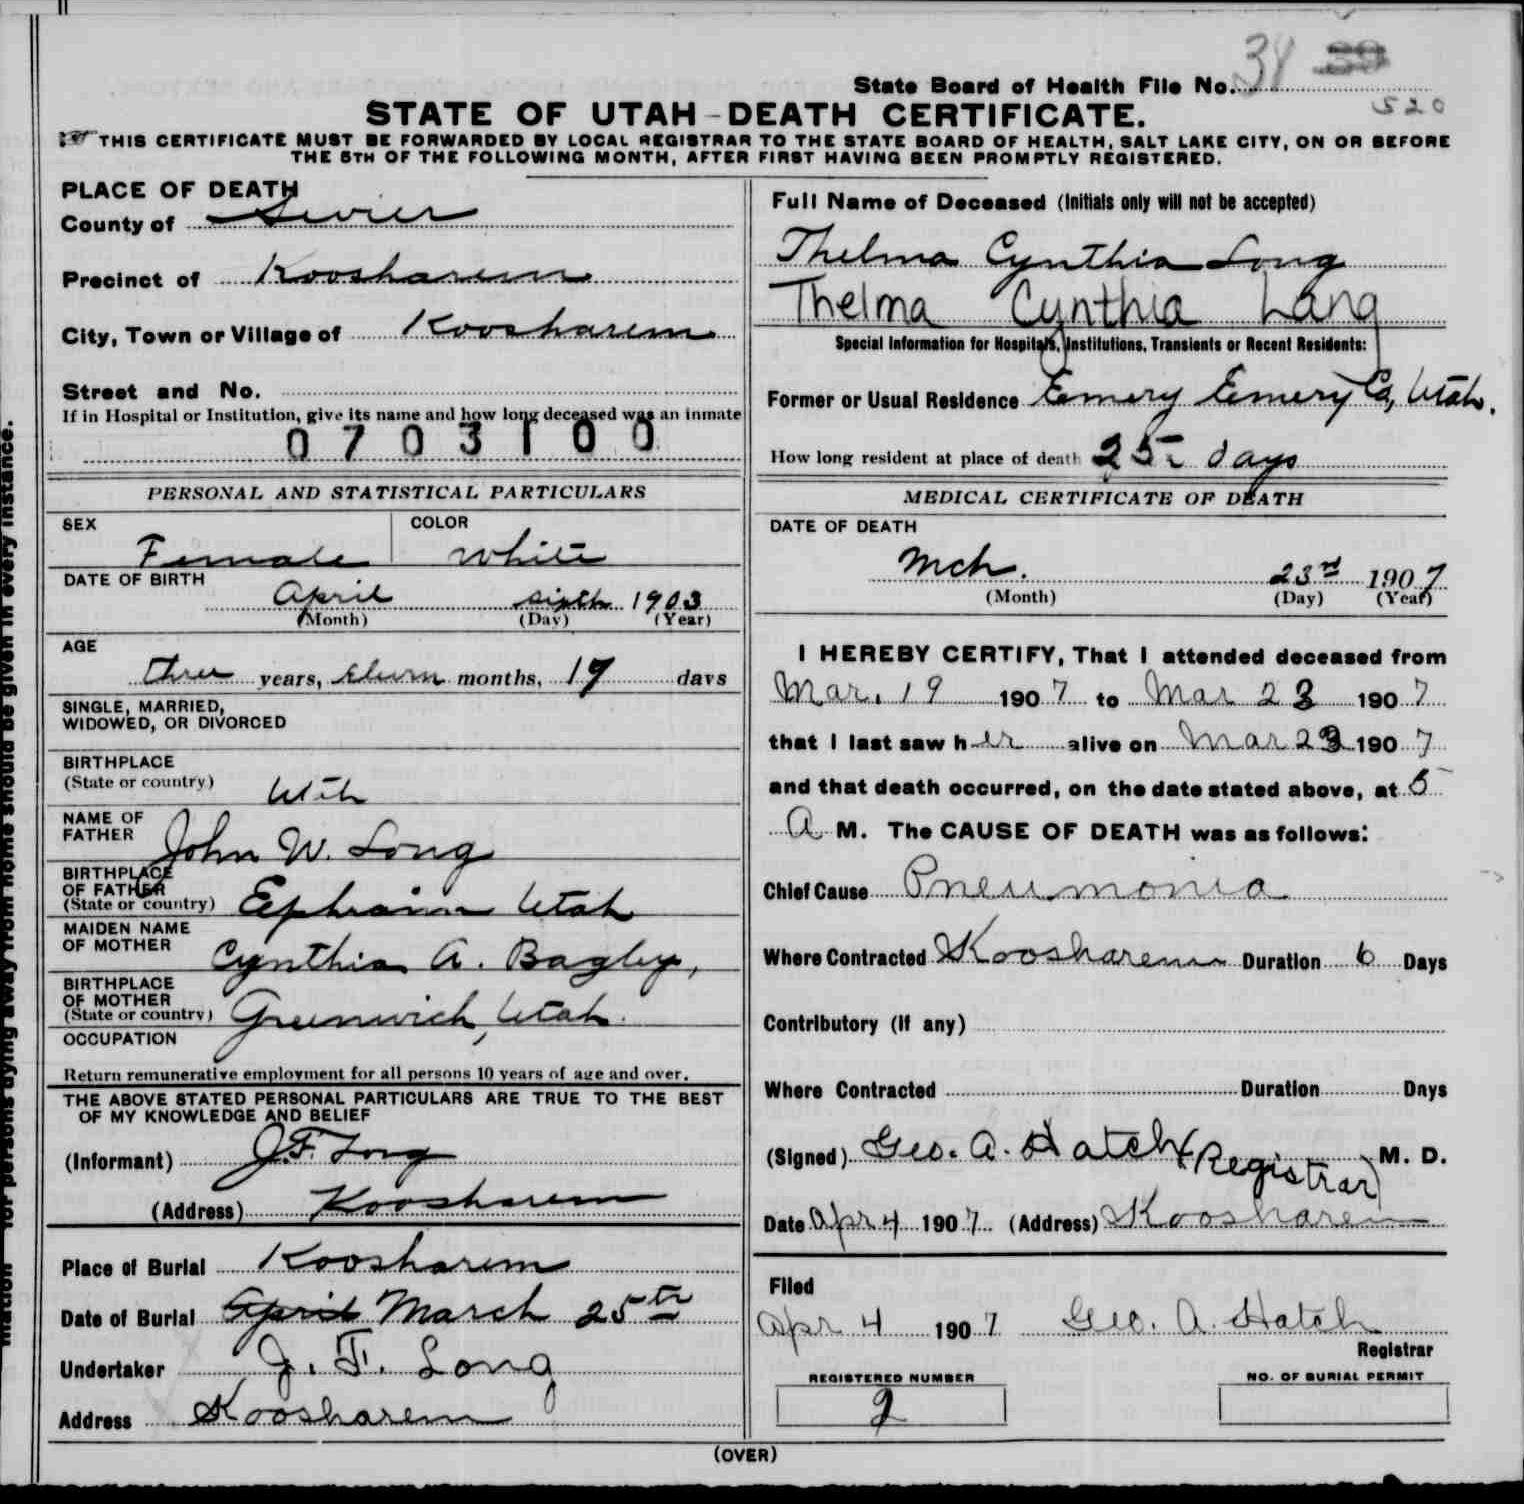 State Board of Health File No. 34
520
STATE OF UTAH-DEATH CERTIFICATE.
THIS CERTIFICATE MUST BE FORWARDED BY LOCAL REGISTRAR TO THE STATE BOARD OF HEALTH, SALT LAKE CITY, ON OR BEFORE
THE 5TH OF THE FOLLOWING MONTH, AFTER FIRST HAVING BEEN PROMPTLY REGISTERED.
PLACE OF DEATH
County of Sevier
Precinct of Koosharem
City, Town or Village of Koosharem
Street and No.
If in Hospital or Institution, give its name and how long deceased was an inmate
0703100
PERSONAL AND STATISTICAL PARTICULARS
SEX COLOR
Female White
DATE OF BIRTH
April sixth 1903
(Month) (Day) (Year)
AGE
three years, Elevn months, 17 days
SINGLE, MARRIED,
WIDOWED, OR DIVORCED
BIRTHPLACE
(State or country) Utah
NAME OF
FATHER John W. Long
BIRTHPLACE
OF FATHER
(State or country) Ephraim Utah
MAIDEN NAME
OF MOTHER Cynthia A. Bagley,
BIRTHPLACE
OF MOTHER
(State or country) Greenwich, Utah.
OCCUPATION
Return remunerative employment for all persons 10 years of age and over.
THE ABOVE STATED PERSONAL PARTICULARS ARE TRUE TO THE BEST
OF MY KNOWLEDGE AND BELIEF
(Informant) J.F. Long
(Address) Koosharem
Place of Burial Koosharem
Date of Burial April March 25th
Undertaker J. F. Long
Address Koosharem
Full Name of Deceased (Initials only will not be accepted)
Thelma Cynthia Long
Thelma Cynthia Lang
Special Information for Hospitals, Institutions, Transients or Recent Residents:
Former or Usual Residence Emery Emery Co, Utah.
How long resident at place of death 25 days
MEDICAL CERTIFICATE OF DEATH
DATE OF DEATH
Mch. 23rd 1907
(Month) (Day) (Year)
I HEREBY CERTIFY, That I attended deceased from
Mar. 19 1907 to Mar 23 1907
that I last saw her alive on Mar 23 1907
and that death occurred, on the date stated above, at 5
A M. The CAUSE OF DEATH was as follows:
Chief Cause Pneumonia
Where Contracted Koosharem Duration 6 Days
Contributory (if any)
Where Contracted Duration Days
(Signed) Geo. A. Hatch (Registrar) M. D.
Date Apr 4 1907 (Address) Koosharem
Filed
Apr 4 1907 Geo. A. Hatch
Registrar
REGISTERED NUMBER NO. OF BURIAL PERMIT
2
(OVER)